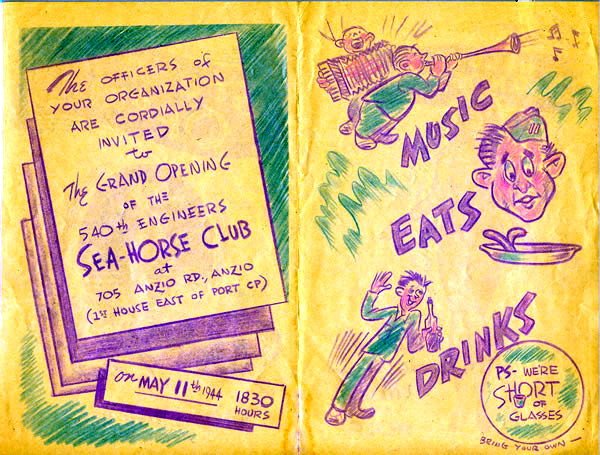 The OFFICERS of
YOUR ORGANIZATION
ARE CORDIALLY
INVITED
to
The GRAND OPENING
OF THE
540th ENGINEERS
SEA-HORSE CLUB
at
705 ANZIO RD., ANZIO
(1ST HOUSE EAST OF PORT CP)
on MAY 11th 1944 1830
HOURS
MUSIC
EATS
DRINKS
PS- WERE
SHORT
OF
GLASSES
BRING YOUR OWN —